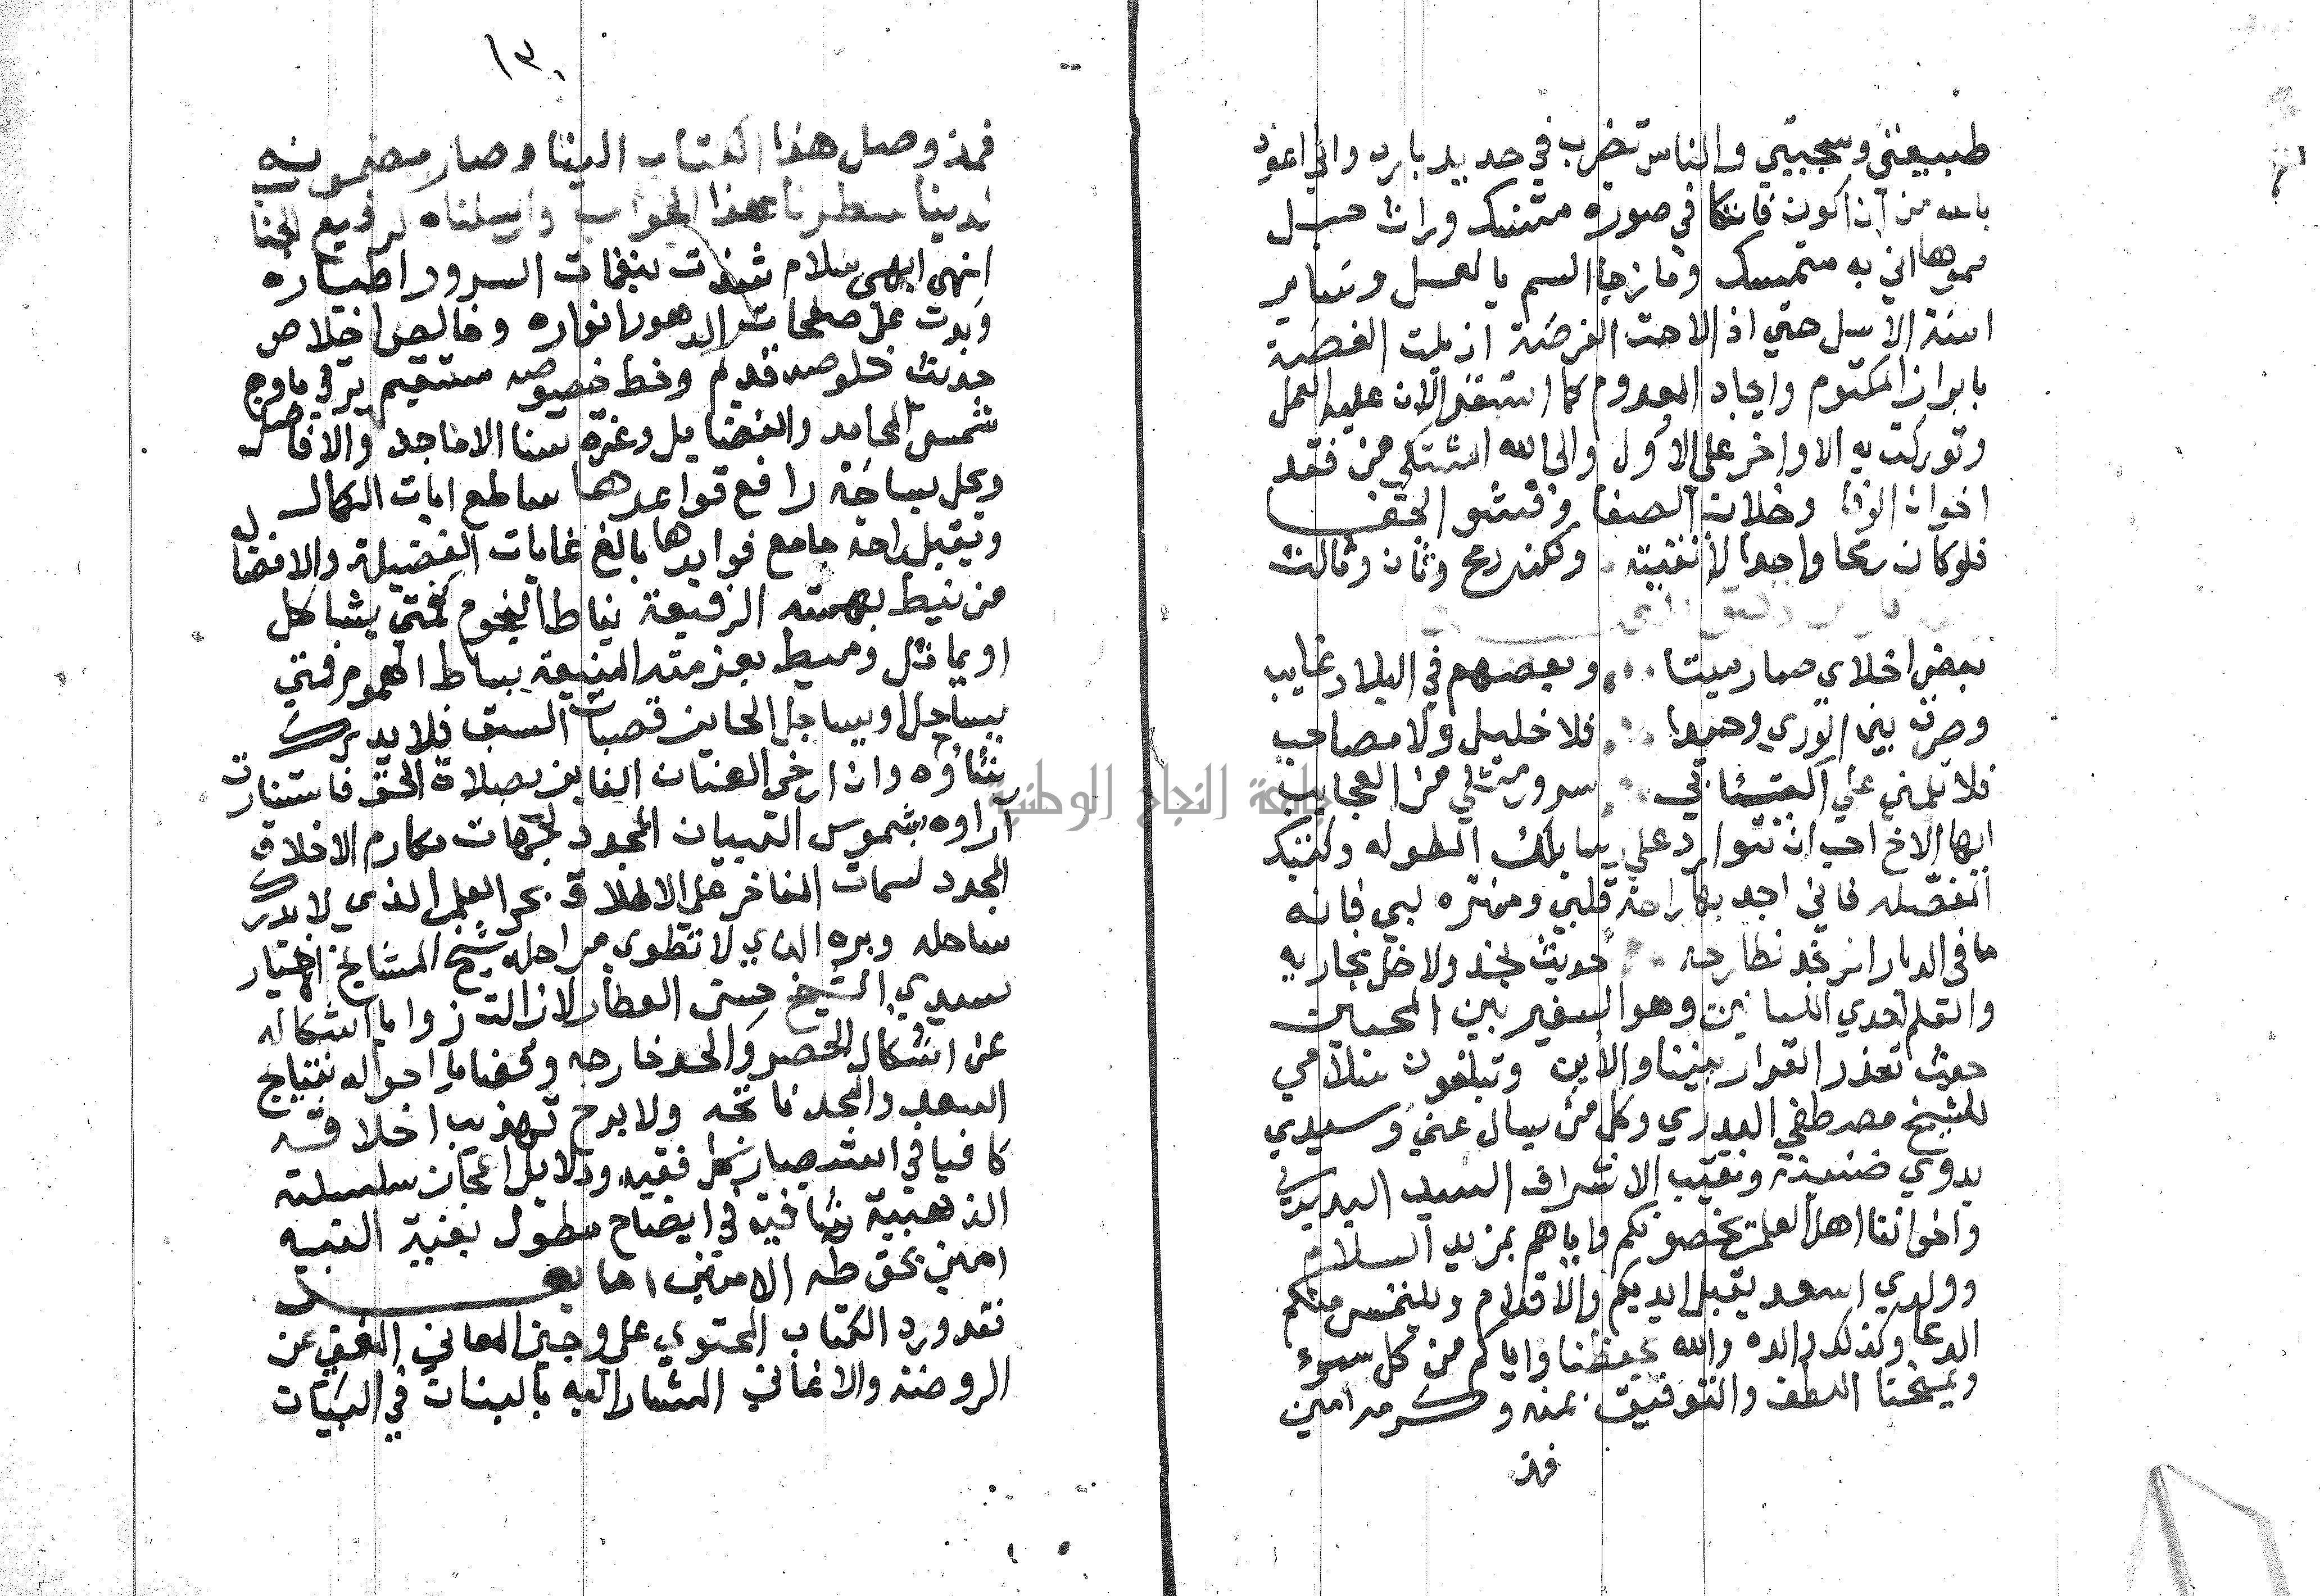 طبيعتي وسجيتي والناس تضرب في حديد بارد واني اعوذ
بالله من ان اكون فاتكا في صورة متنسك وراث حبل
مموها اني به متمسك ومازجا السم بالعسل وساير
اسنة الاسل حتي اذا لاحت الفرصة ازيلت الغصة
بابراز المكتوم وايجاد المعدوم كما استقر الان عليه العمل
وتوركت به الاواخر على الاول والى الله المشتكي من فقد
اخوان الوفا وخلان الصفا وفشو الجفا
فلو كان رمحا واحدا لاتقيته ولكنه رمح وثان وثالث
بعض اخلاي صار ميتا وبعضهم في البلاد غايب
وصرت بين الوري وحيدا فلا خليل ولا مصاحب
فلا تلمني علي اكتئابي سرور مثلي من العجايب
ايها الاخ احب ان تتوارد علي رسايلك المطوله وكتبك
المفصله فاني اجد بها راحة قلبي ومنتزه لبي فانه
ما في الديار اخو وجد نطارحه حديث نجد ولا خل نجاريه
والقلم احدي اللسانين وهو السفير بين المحبين
حيث تعذر القرار بيننا والاين وتبلغون سلامي
للشيخ مصطفي البدري وكل من يسال عني وسيدي
بدوي ضنينة ونقيب الاشراف السيد البديري
واخواننا اهل العلم نخصونكم واياهم بمزيد السلام
وولدي اسعد يقبل ايديكم والاقدام ويلتمس منكم
الدعا وكذلك والده والله يحفظنا واياكم من كل سوء
ويمنحنا اللطف والتوفيق بمنه وكرمه امين
فمذ
١٣
فمذ وصل هذا الكتاب الينا وصار مضمونه
لدينا سطرنا هذا الجواب وارسلناه لرفيع الجنا
انهي ابهى سلام شذت بنفحات السرور اطياره
وبدت على صفحات الدهور انواره وخالص اخلاص
حديث خلوصه قديم وخط خصوصه مستقيم يرقي باوج
شمس المحامد والفضايل وغرة سنا الاماجد والافاضل
ويحل بساحة رافع قواعدها ساطع ايات الكمال
ويقبل راحة جامع فوايدها بالغ غايات الفضيلة والافضال
من نيط بهمته الرفيعة نياط النجوم فمتي يشاكل
او يماثل وميط بعزمته المنيعة بساط الهموم فمتي
يساجل او يساجل الحايز قصبات السبق فلا يدرك
شاوه وان ارخى العنان الفايز بصلاة الحق فاستنارت
آراوه بشموس التبيان المجدد لجهات مكارم الاخلاق
المجدد لسمات المفاخر على الاطلاق بحر العلم الذي لا يدرك
ساحله وبره الذي لا تطوى مراحله شيخ المشايخ الاخيار
سيدي الشيخ حسن العطار لازالت زوايا اشكاله
عن اشكال الحصر والحد خارجه وقضايا احواله بنتايج
السعد والمجد ناتجه ولا برح تهذيب اخلاقه
كافيا في استبصار كل فقيه ودلايل اعجاز سلسلته
الذهبية شافية في ايضاح مطول بغية النبيه
امين بحق طه الامين اما بعد
فقد ورد الكتاب المحتوي على وجيز المعاني المغني عن
الروضة والاغاني المشار اليه بالبنان في البيان
جامعة النجاح الوطنية